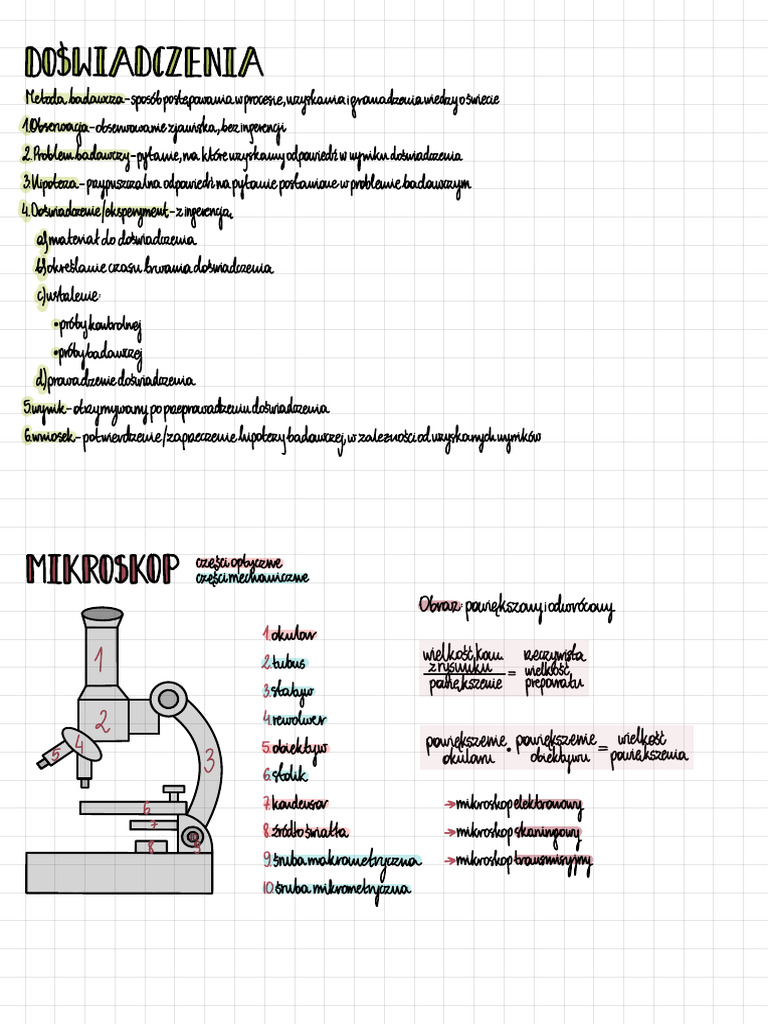 DOŚWIADCZENIA
Metoda badawcza - sposób postępowania w procesie, uzyskania i gromadzenia wiedzy o świecie
1. Obserwacja - obserwowanie zjawiska, bez ingerencji
2. Problem badawczy - pytanie, na które uzyskamy odpowiedź w wyniku doświadczenia
3. Hipoteza - przypuszczalna odpowiedź na pytanie postawione w problemie badawczym
4. Doświadczenie/eksperyment - z ingerencją
a) materiał do doświadczenia
b) określanie czasu trwania doświadczenia
c) ustalenie:
• próby kontrolnej
• próby badawczej
d) prowadzenie doświadczenia
5. wynik - otrzymywany po przeprowadzeniu doświadczenia
6. wniosek - potwierdzenie/zaprzeczenie hipotezy badawczej, w zależności od uzyskanych wyników
MIKROSKOP
części optyczne
części mechaniczne
1
2
3
4
5
6
7
8
9
1. okular
2. tubus
3. statyw
4. rewolwer
5. obiektyw
6. stolik
7. kondensor
8. źródło światła
9. śruba makrometryczna
10. śruba mikrometryczna
Obraz: powiększony i odwrócony
wielkość kom.
z rysunku
powiększenie
=
rzeczywista
wielkość
preparatu
powiększenie
okularu
•
powiększenie
obiektywu
=
wielkość
powiększenia
→ mikroskop elektronowy
→ mikroskop skaningowy
→ mikroskop transmisyjny